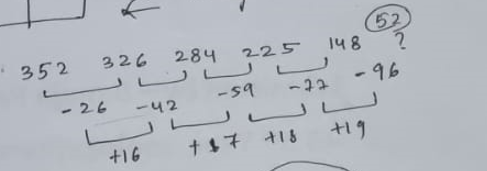 52
352 326 284 225 148 ?
-26 -42 -59 -77 -96
+16 +17 +18 +19